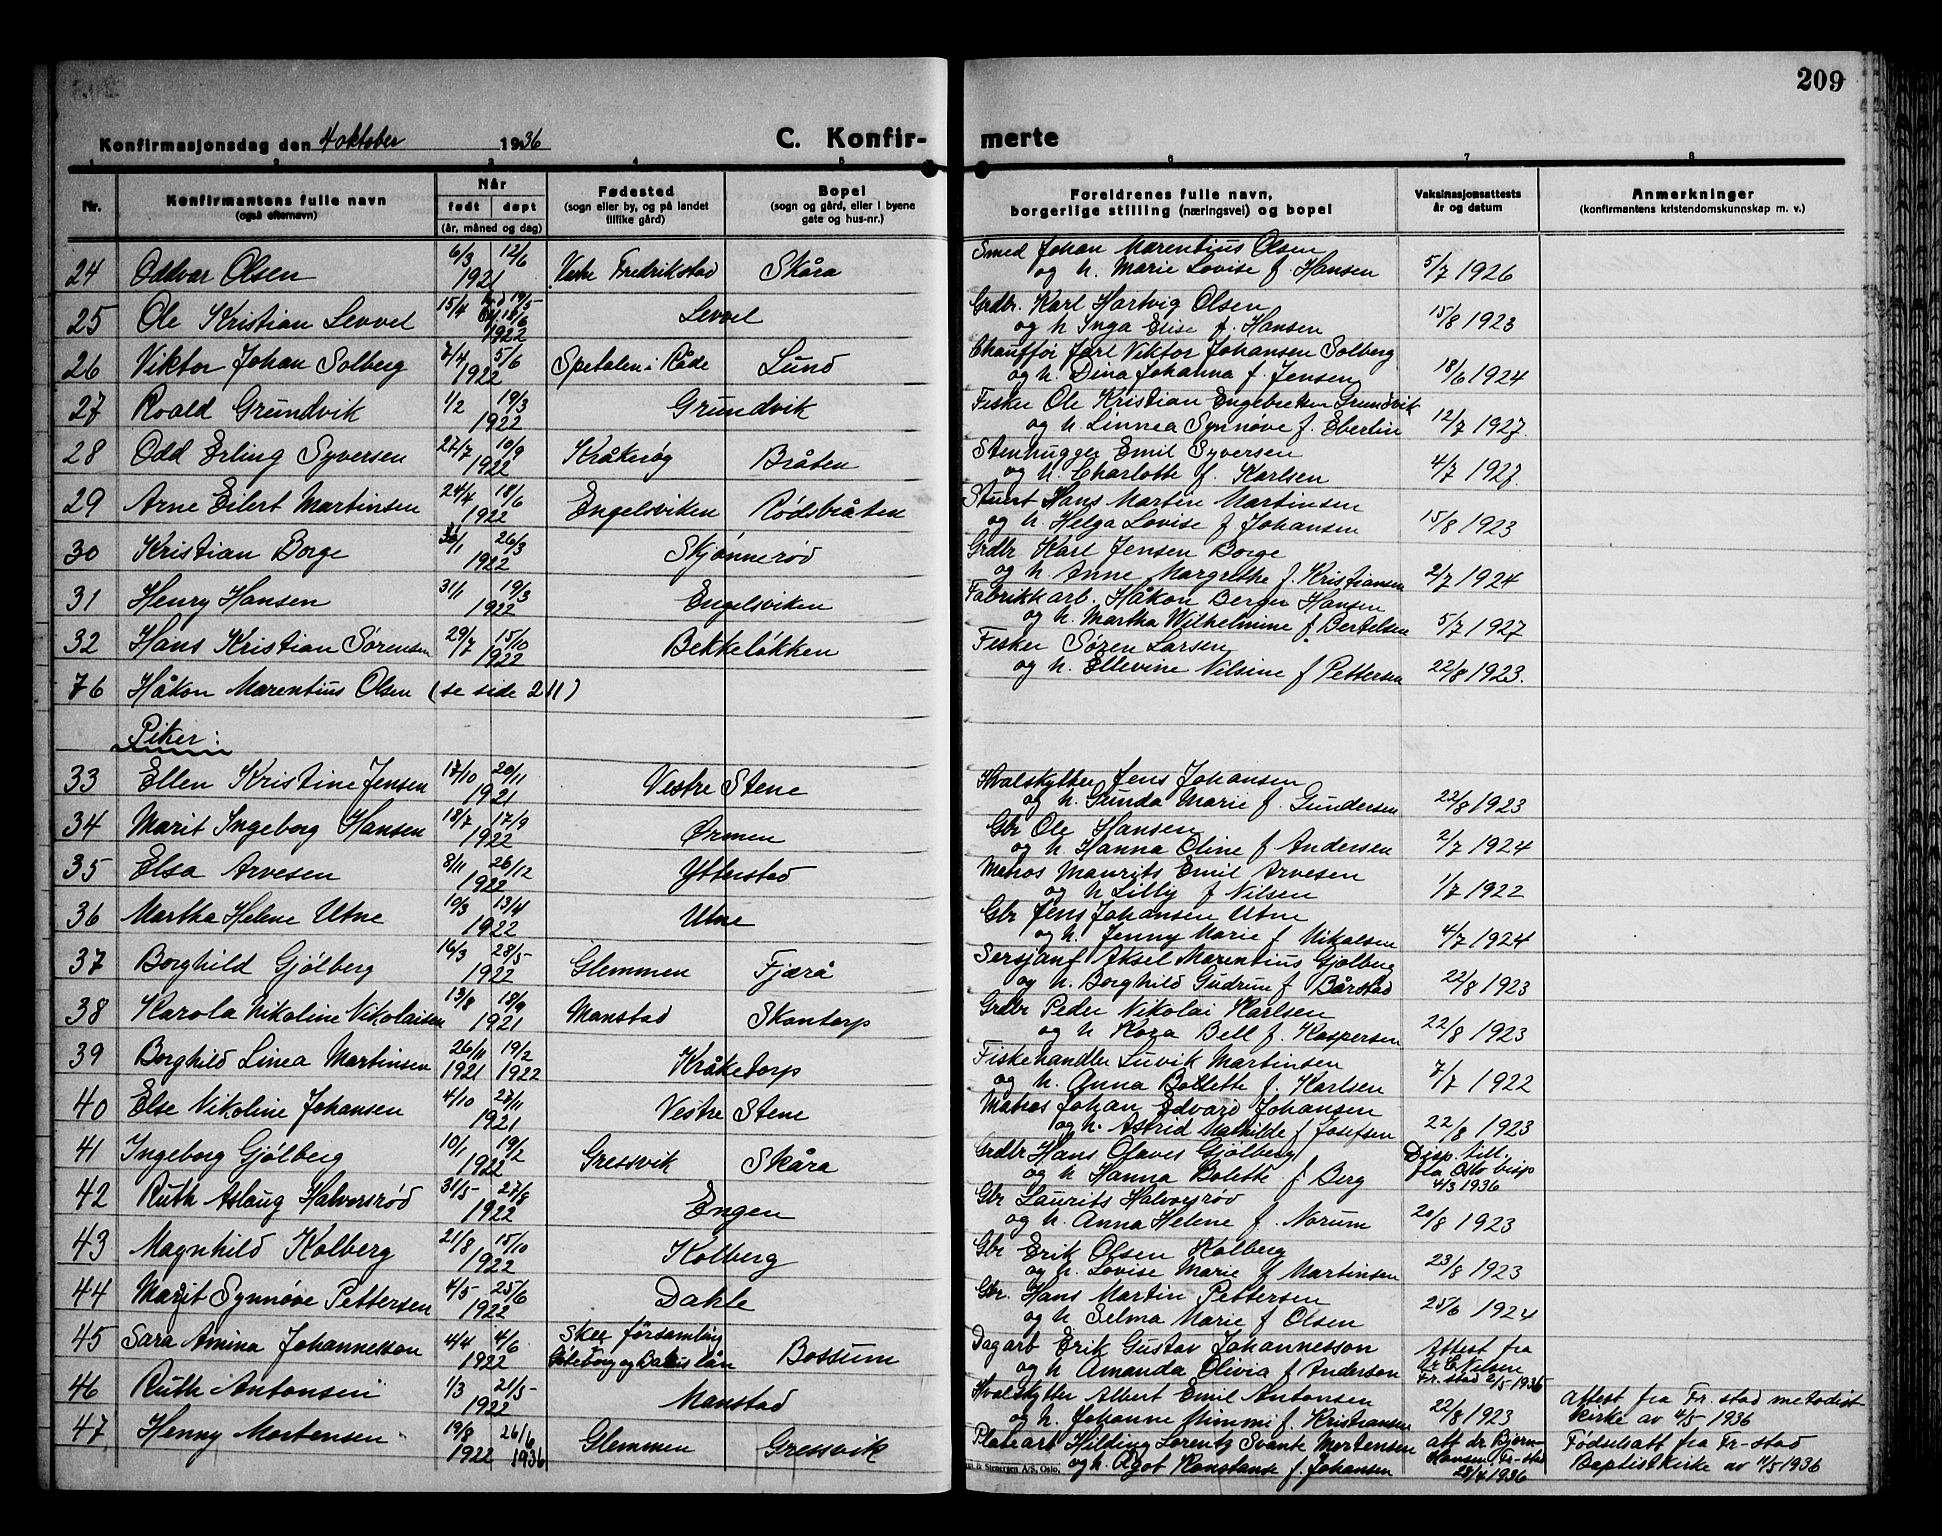 209
Konfirmasjonsdag den 4 oktober 1936
C. Konfir-merte
1 2 3 4 5 6 7 8
Nr. Konfirmantens fulle navn (også efternavn) Når født døpt (år, måned og dag) Fødested (sogn eller by, og på landet tillike gård) Bopel (sogn og gård, eller i byene gate og hus-nr.) Foreldrenes fulle navn, borgerlige stilling (næringsvei) og bopel Vaksinasjonsattests år og datum Anmerkninger (konfirmantens kristendomskunnskap m. v.)
24 Oddvar Olsen 6/3 12/6 1921 Fredrikstad Skåra Smed Johan Marentius Olsen
og h. Marie Lovise f. Hansen 5/7 1926
25 Ole Kristian Levvel 15/4 19/5 18/6 1922 Levvel Grdbr. Karl Hartvig Olsen
og h Inga Elise f. Hansen 15/8 1923
26 Viktor Johan Solberg 7/4 5/6 1922 Spetalen i Råde Lund Chauffør Jarl Viktor Johansen Solberg
og h. Dina Johanna f. Jensen 18/6 1924
27 Roald Grundvik 1/2 19/3 1922 Grundvik Fisker Ole Kristian Engebretsen Grundvik
og h. Linnea Synnøve f. Ebertin 12/7 1927.
28 Odd Erling Syversen 27/7 10/9 1922 Kråkerøy Bråten Stenhugger Emil Syversen
og h. Charlotte f. Karlsen 4/7 1927.
29 Arne Eilert Martinsen 24/4 18/6 1922 Engelsviken Rødsbråten Stuert Hans Martin Martinsen
og h. Helga Lovise f Johansen 15/8 1923
30 Kristian Borge 30/1 26/3 1922 Skjønnerød Grdbr Karl Jensen Borge
og h. Anne Margrethe f. Kristiansen 2/7 1924
31 Henry Hansen 31/1 19/3 1922 Engelsviken Fabrikkarb. Håkon Berger Hansen
og h. Martha Wilhelmine f Bertelsen 5/7 1927
32 Hans Kristian Sørensen 29/7 15/10 1922 Bekkeløkken Fisker Søren Larsen
og h. Ellevine Nilsine f Pettersen 22/8 1923.
76 Håkon Marentius Olsen (se side 211)
Piker:
33 Ellen Kristine Jensen 17/10 20/11 1921 Vestre Stene Hvalskytter Jens Johansen
og h. Gunda Marie f. Gundersen 22/8 1923
34 Marit Ingeborg Hansen 18/7 17/9 1922 Ørmen Gbr Ole Hansen
og h. Hanna Oline f Andersen 2/7 1924
35 Elsa Arvesen 8/11 26/12 1922 Ytterstad Matros Maurits Emil Arvesen
og h Lilly f Nilsen 1/7 1922
36 Martha Helene Utne 10/3 13/4 1922 Utne Gbr Jens Johansen Utne
og h. Jenny Marie f Nikolsen 4/7 1924
37 Borghild Gjølberg 16/3 28/5 1922 Glemmen Fjærå Sersjant Aksel Marentius Gjølberg
og h. Borghild Gudrun f Bårstad 22/8 1923
38 Karola Nikoline Nikolaisen 13/8 18/9 1921 Manstad Skantorp Grdbr Peder Nikolai Karlsen
og h Kora Bell f. Kaspersen 22/8 1923
39 Borghild Linea Martinsen 26/11 1921 19/2 1922 Kråketorp Fiskehandler Luvik Martinsen
og h. Anna Bolette f. Karlsen 7/7 1922
40 Else Nikoline Johansen 4/10 27/11 1921 Vestre Stene Matros Johan Edvard Johansen
og h. Astrid Mathilde f Josefsen 22/8 1923
41 Ingeborg Gjølberg 10/1 19/2 1922 Gressvik Skåra Grdbr Hans Olaves Gjølberg
og h Hanna Bolette f Berg Disp. till. fra Oslo bisp 4/3 1936
42 Ruth Aslaug Halvorsrød 31/5 27/8 1922 Engen Gbr Laurits Halvorsrøv
og h. Anna Helene f. Norum 20/8 1923
43 Magnhild Kolberg 21/8 15/10 1922 Kolberg Gbr Erik Olsen Kolberg
og h. Lovise Marie f Martinsen 23/8 1923
44 Marit Synnøve Pettersen 4/5 25/6 1922 Dahle Gbr. Hans Martin Pettersen
og h Selma Marie f Olsen 25/6 1924
45 Sara Amina Johannesson 4/4 4/6 1922 Skee församling Göteborg og Bohus län Bossum Dagarb Erik Gustav Johannesson
og h Amanda Olivia f Anderson Attest fra dr C Nilsen Fr.stad 2/5 1936
46 Ruth Antonsen 1/3 21/5 1922 Manstad Hvalskytter Albert Emil Antonsen
og h. Johanne Mimmi f. Kristiansen 22/8 1923 Attest fra Fr.stad metodist kirke av 4/5 1936
47 Henny Mortensen 19/8 1922 26/6 1936 Glemmen Gressvik Platearb Hilding Lorentz Svante Mortensen
og h. Agot Konstanse f. Johansen att dr Bjørn-Hansen Fr-stad 28/4 1936 Fødselsatt fra Fr-stad Baptistkirke av 11/5 1936
A/S, Oslo.